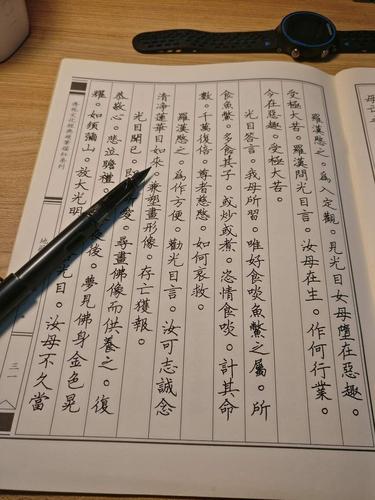 羅漢愍之。為入定觀。見光目女母墮在惡趣。
受極大苦。羅漢問光目言。汝母在生。作何行業。
今在惡趣。受極大苦。
光目答言。我母所習。唯好食啖魚鱉之屬。所
食魚鱉。多食其子。或炒或煮。恣情食啖。計其命
數。千萬復倍。尊者慈愍。如何哀救。
羅漢愍之。為作方便。勸光目言。汝可志誠念
清淨蓮華目如來。兼塑畫形像。存亡獲報。
光目聞 所愛。尋畫佛像而供養之。復
恭敬心。悲泣瞻禮。 後。夢見佛身金色晃
耀。如須彌山。放大光明 光目。汝母不久當
地
三一